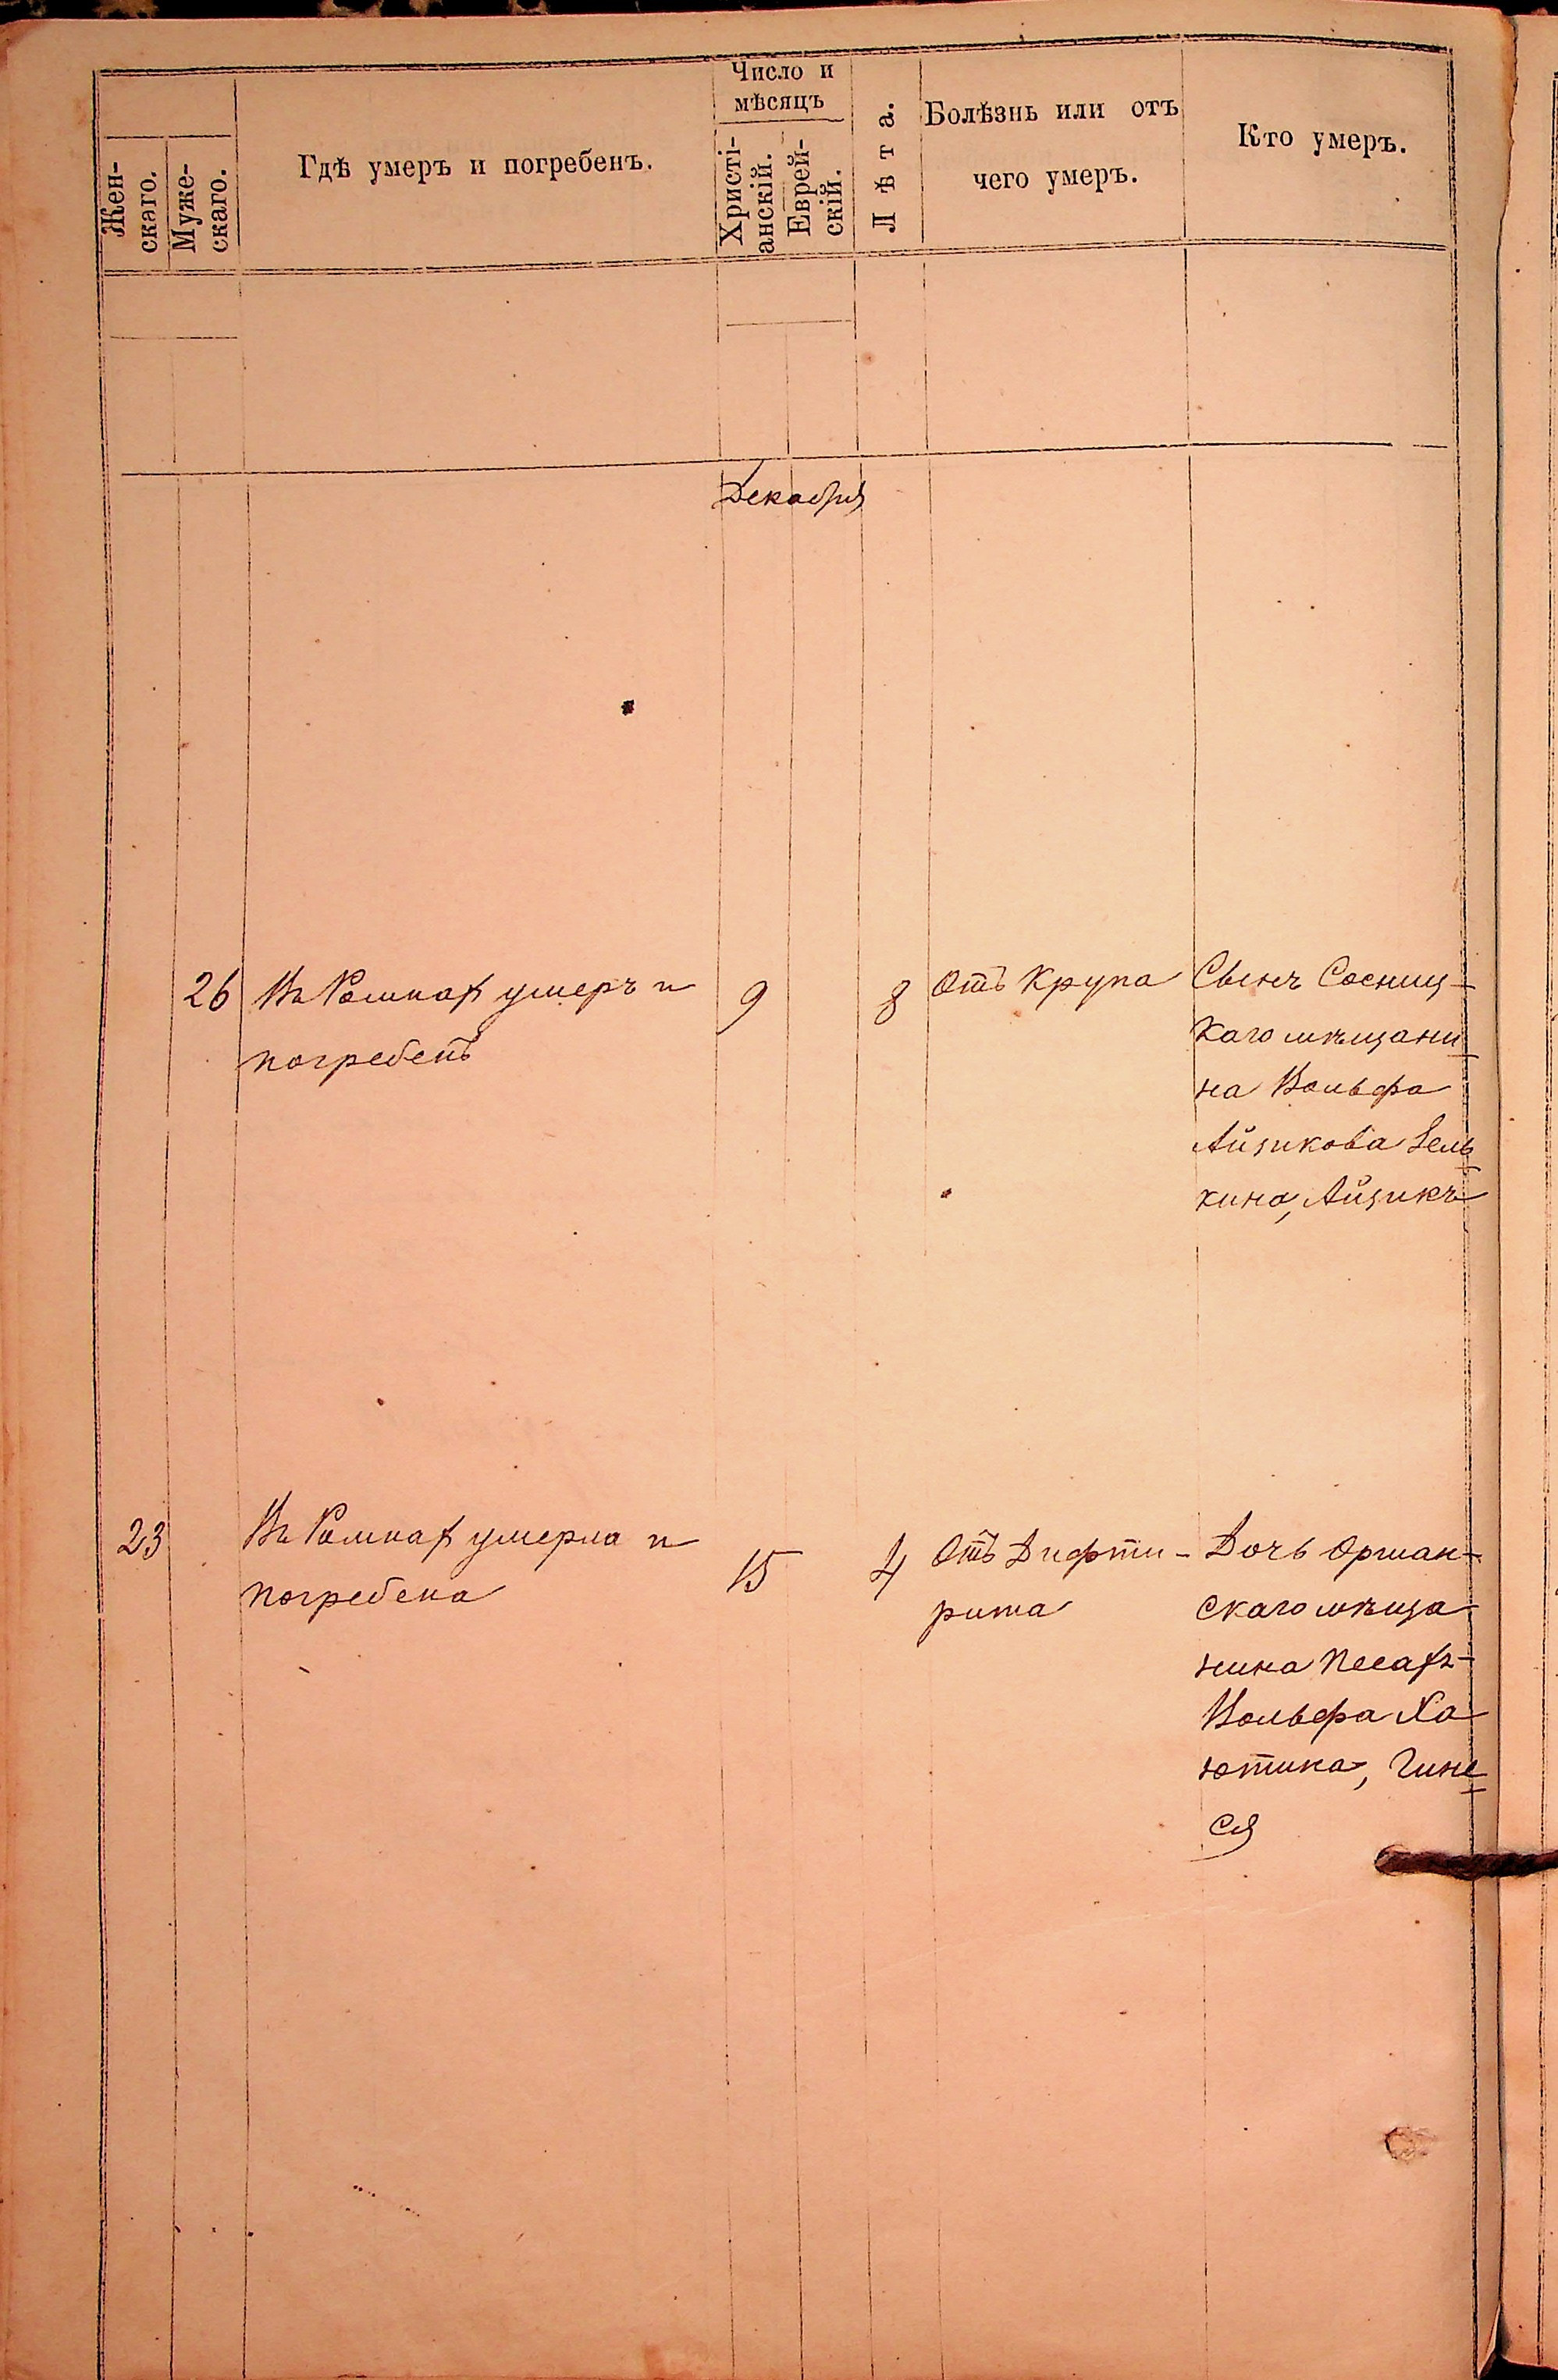 Жен-
скаго.
Муже-
скаго.
Гдѣ умеръ и погребенъ.
Число и
мѣсяцъ
Христі-
анскій.
Еврей-
скій.
Лѣта.
Болѣзнь или отъ
чего умеръ.
Кто умеръ.
Декабря
26
Въ Ромнах умеръ и
погребенъ
9
8
Отъ Крупа
Сынъ Сосниц-
каго мѣщани-
на Вольфа
Айзикова Зель-
кина, Айзикъ
23
Въ Ромнах умерла и
погребена
15
4
Отъ Дифти-
рита
Дочь Оршан-
скаго мѣща-
нина Песахъ-
Вольфа Ха-
ютика, Гине-
ся